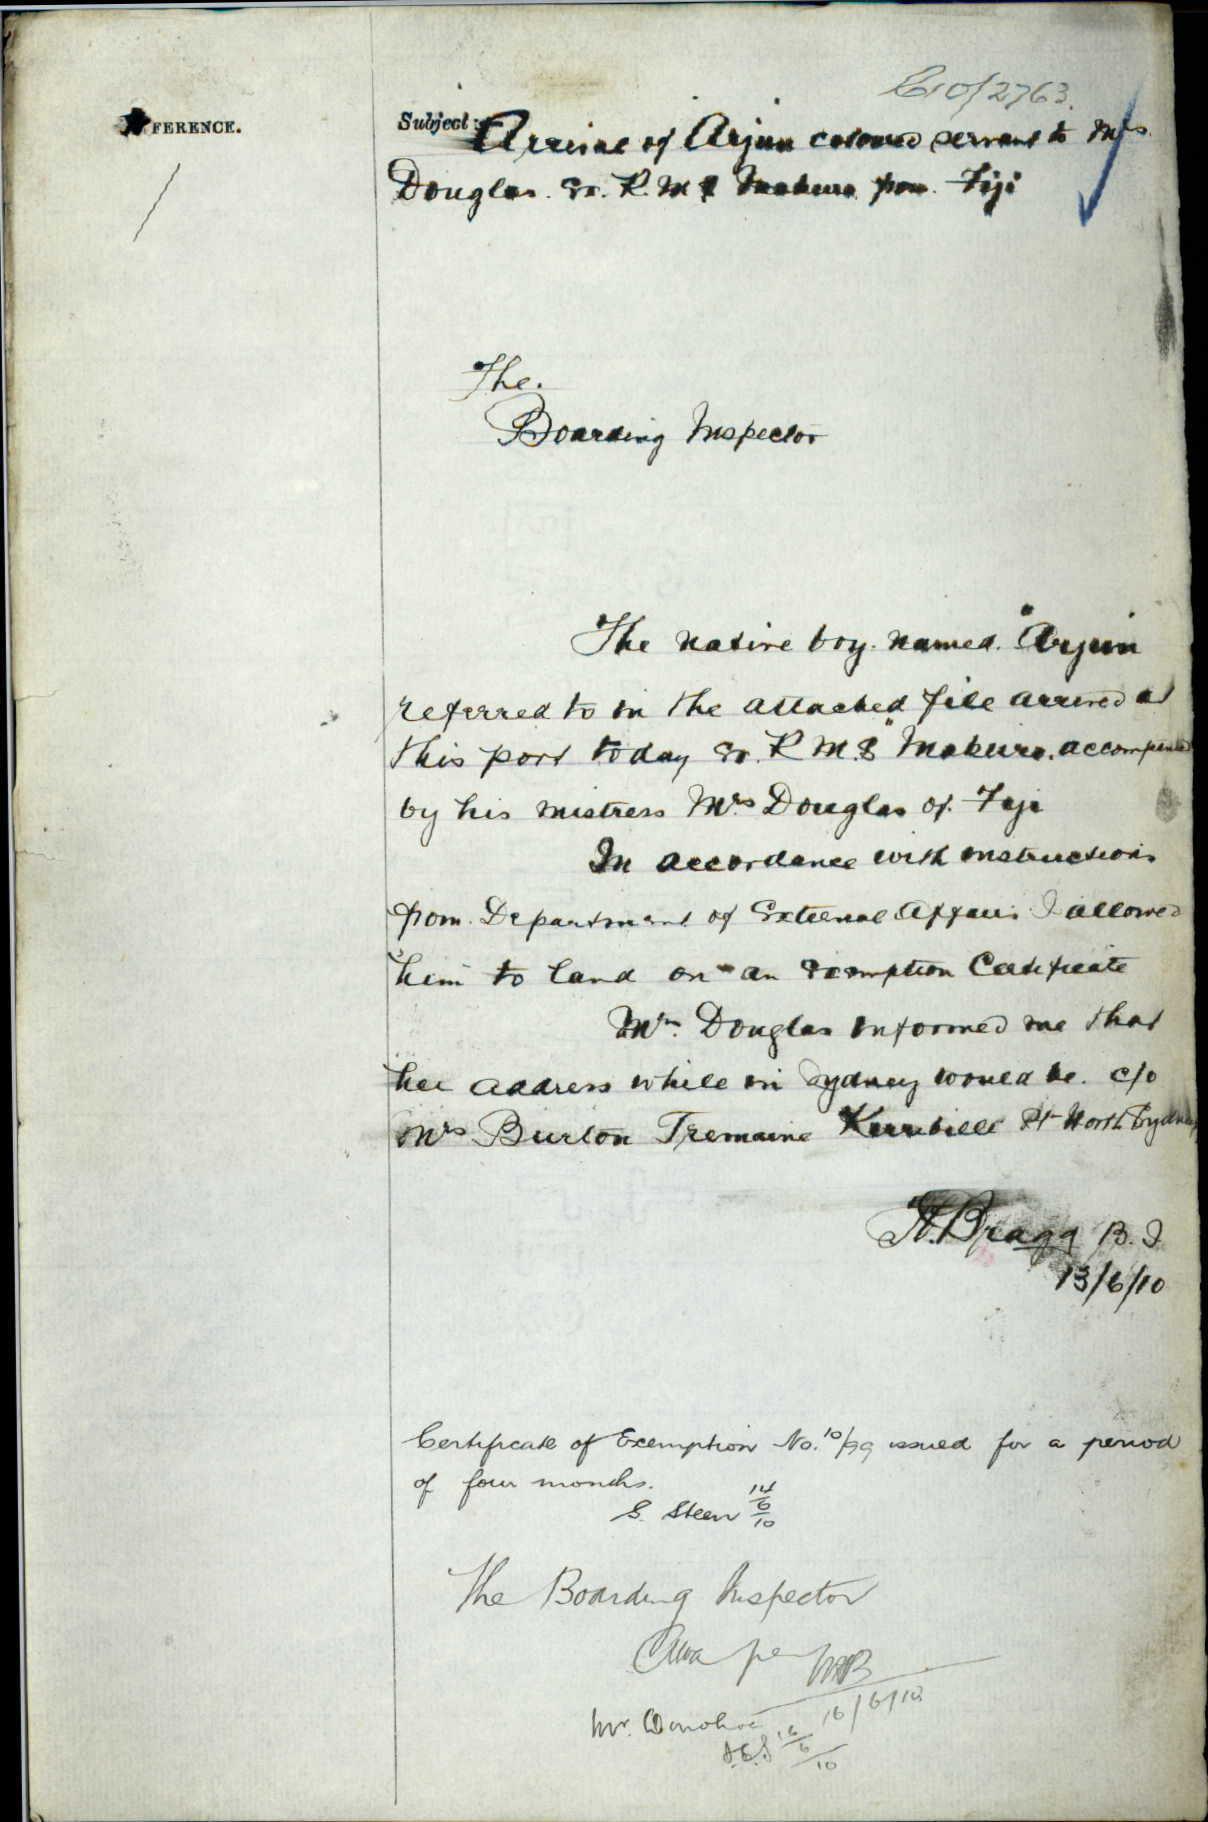 C10/2763.
FERENCE.
Subject:- Arrival of Arjun coloured servant to Mrs
Douglas. Ex. R.M.S Makura from Fiji
The.
Boarding Inspector
The native boy named "Arjun
referred to in the attached file arrived at
this port today Ex. R.M.S "Makura. accompanied
by his mistress Mrs Douglas of Fiji
In accordance with instructions
from Department of External Affairs I allowed
him to land on an Exemption Certificate
Mrs. Douglas informed me that
her address while in Sydney would be. c/o
Mrs Burton Tremaine Kirribilli Pt North Sydney
H. Bragg B.I
13/6/10
Certificate of Exemption No. 10/99 issued for a period
of four months.
G. Steen 14/6/10
The Boarding Inspector
16/6/10
Mr. Donohoe
16/6/10